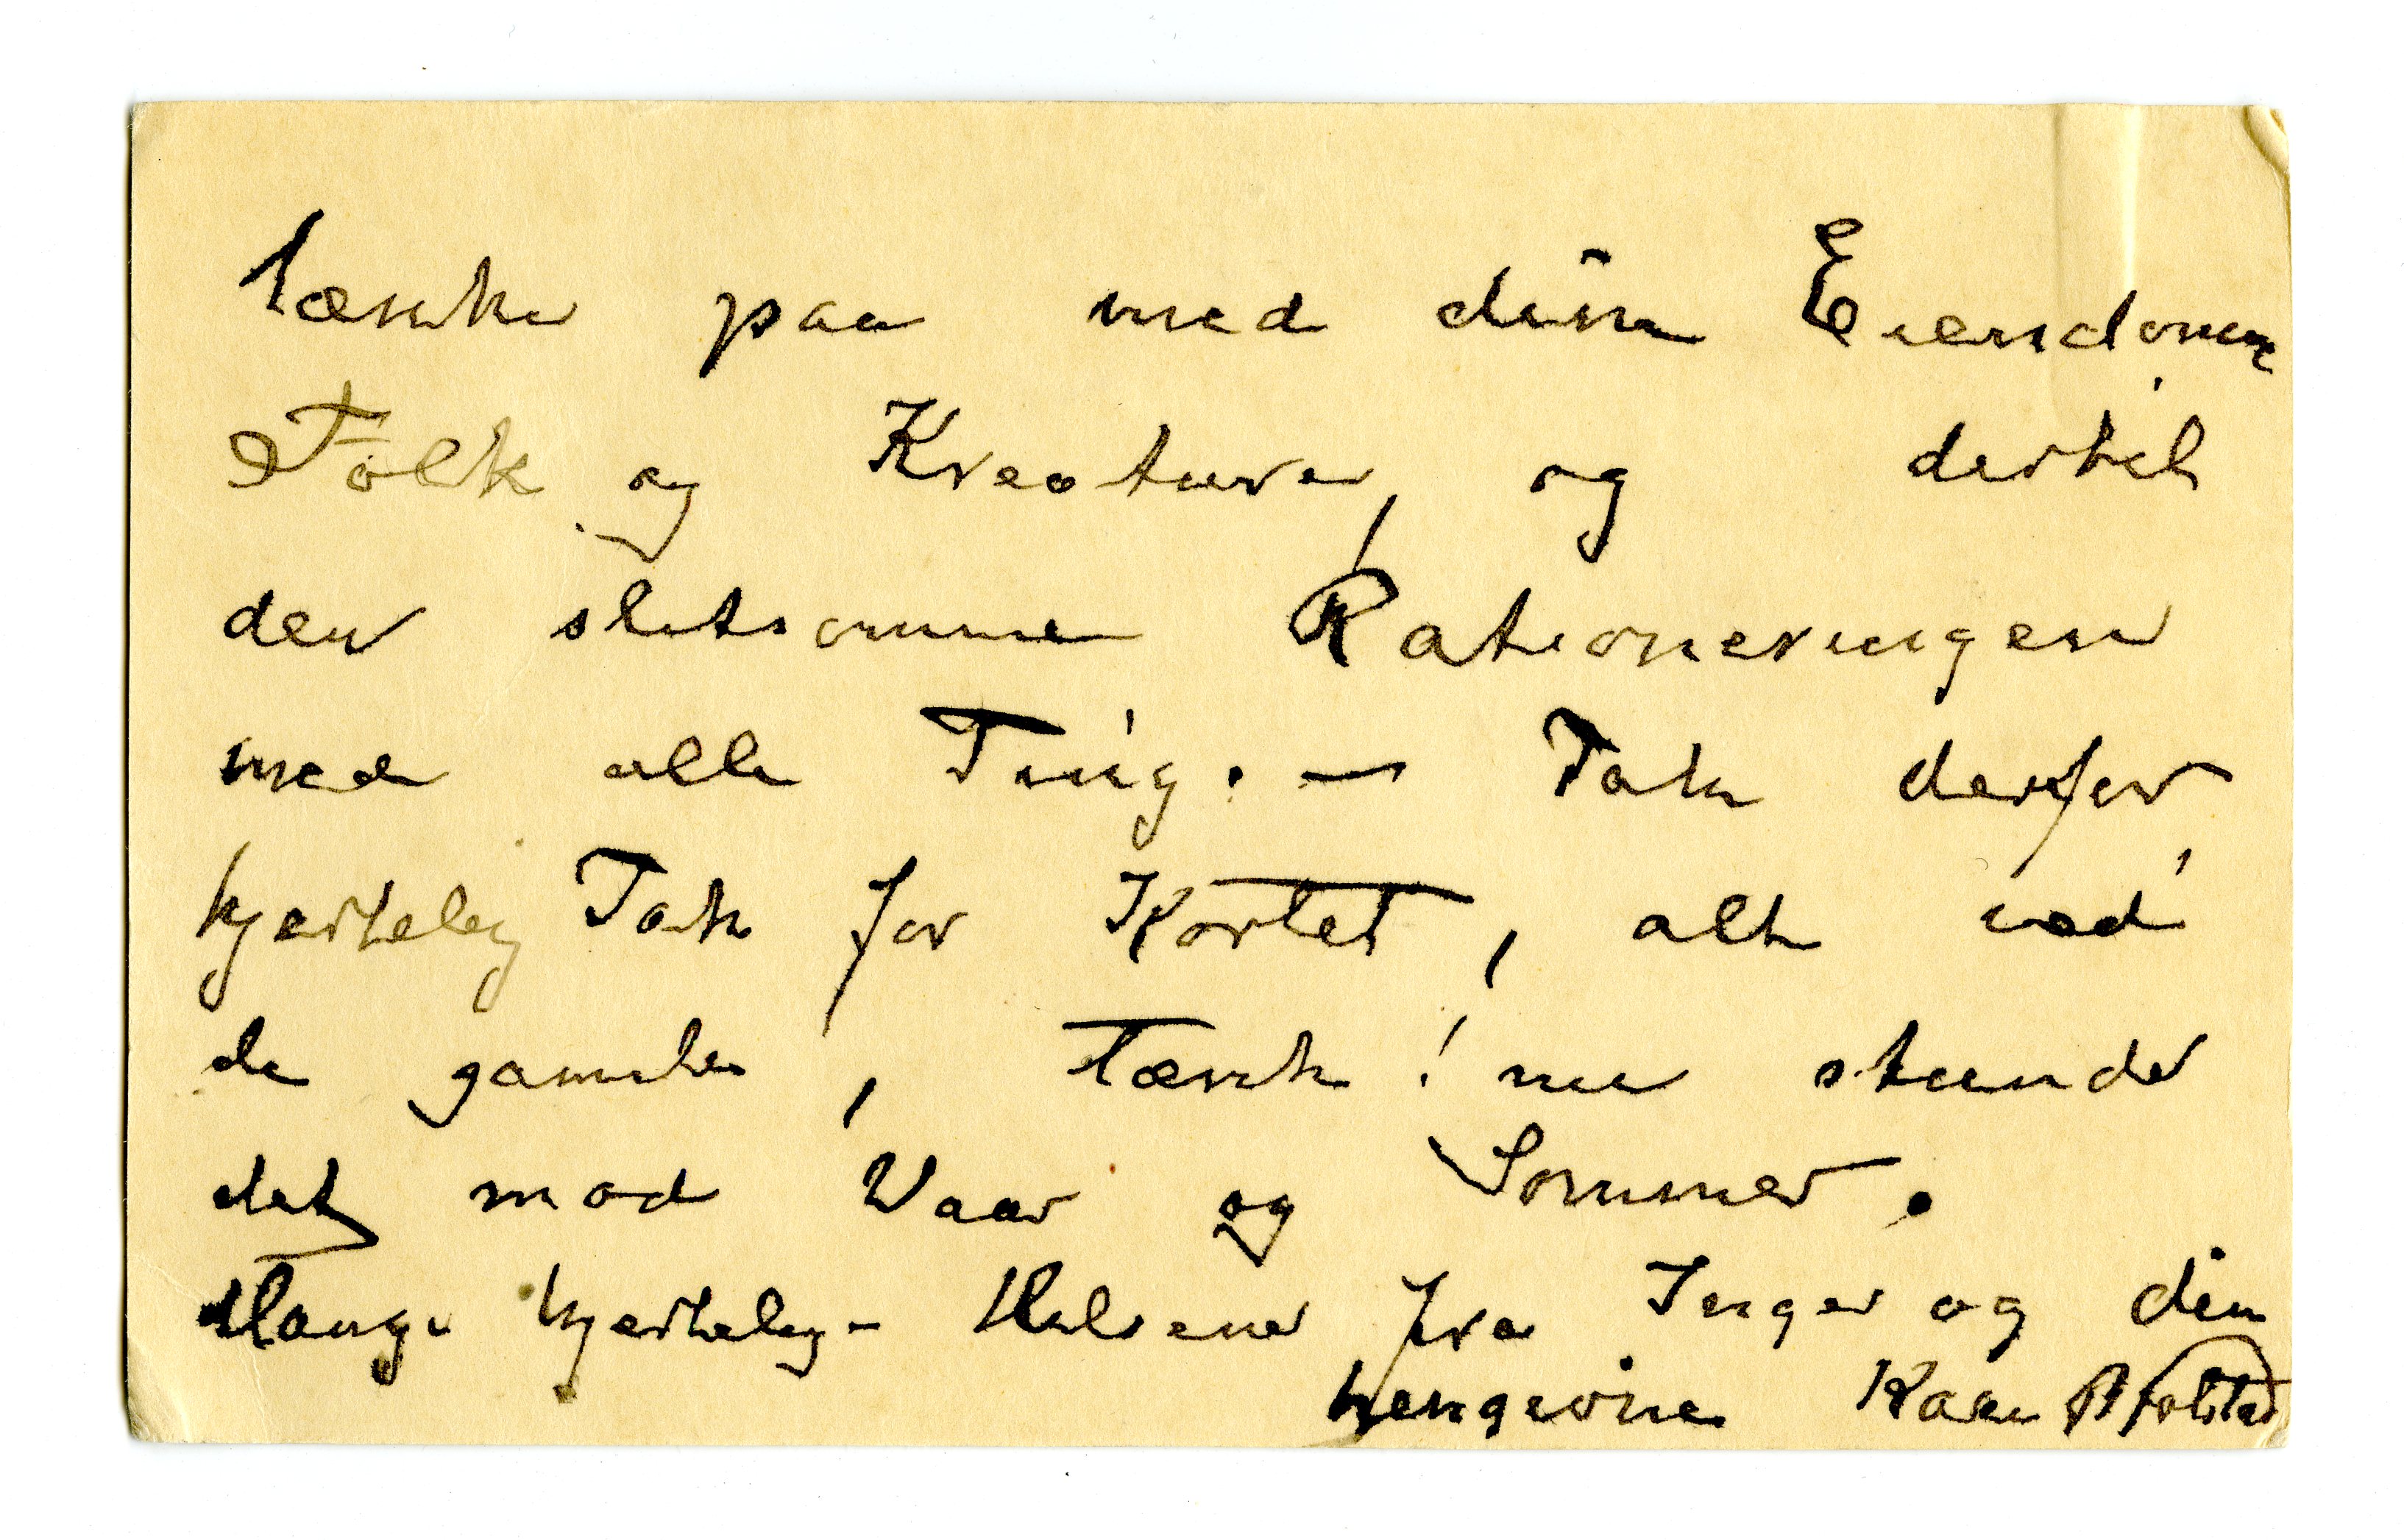 tænke paa med dine Eiendomme
Folk og Kreature, og dertil
den slitsomme Rationeringen
med alle Ting. — Tak derfor
hjertelig Tak for Kortet, alt ved
de gamle, tænk! nu stunder
det mod Vaar og Sommer.
Mange hjertelige Helsener fra Inger og din
hengivne Karen